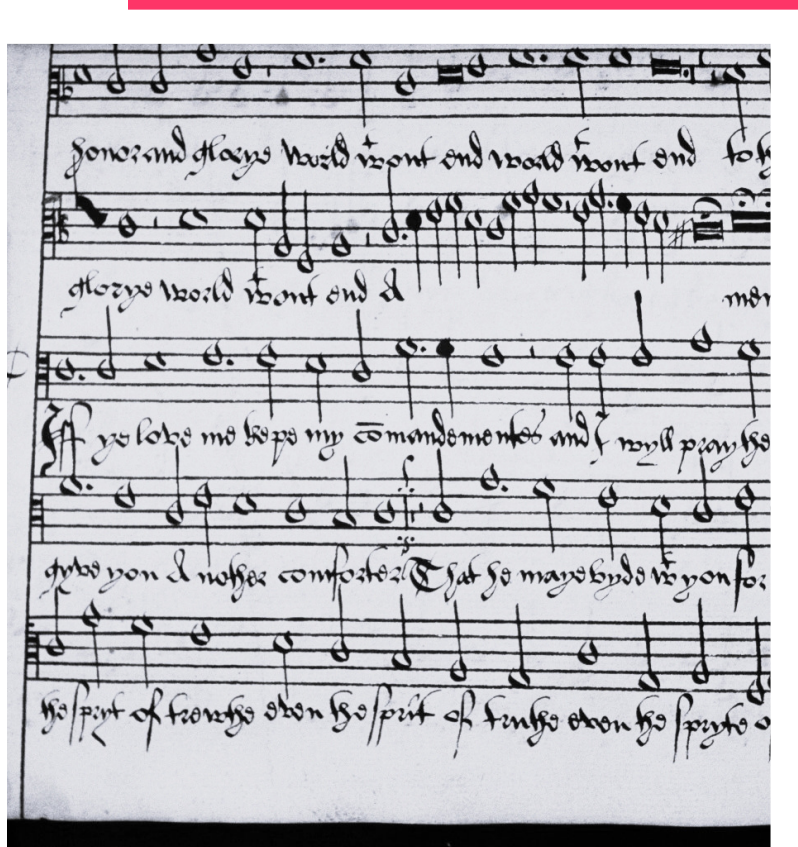 honor and glorye world wtout end world wtout end to
glorye world wtout end A men
If ye love me kepe my comandementes and I wyll pray the
gyve you A nother comforter That he maye byde wt you for
the spryt of trewthe even the sprit of truthe even the spryte o